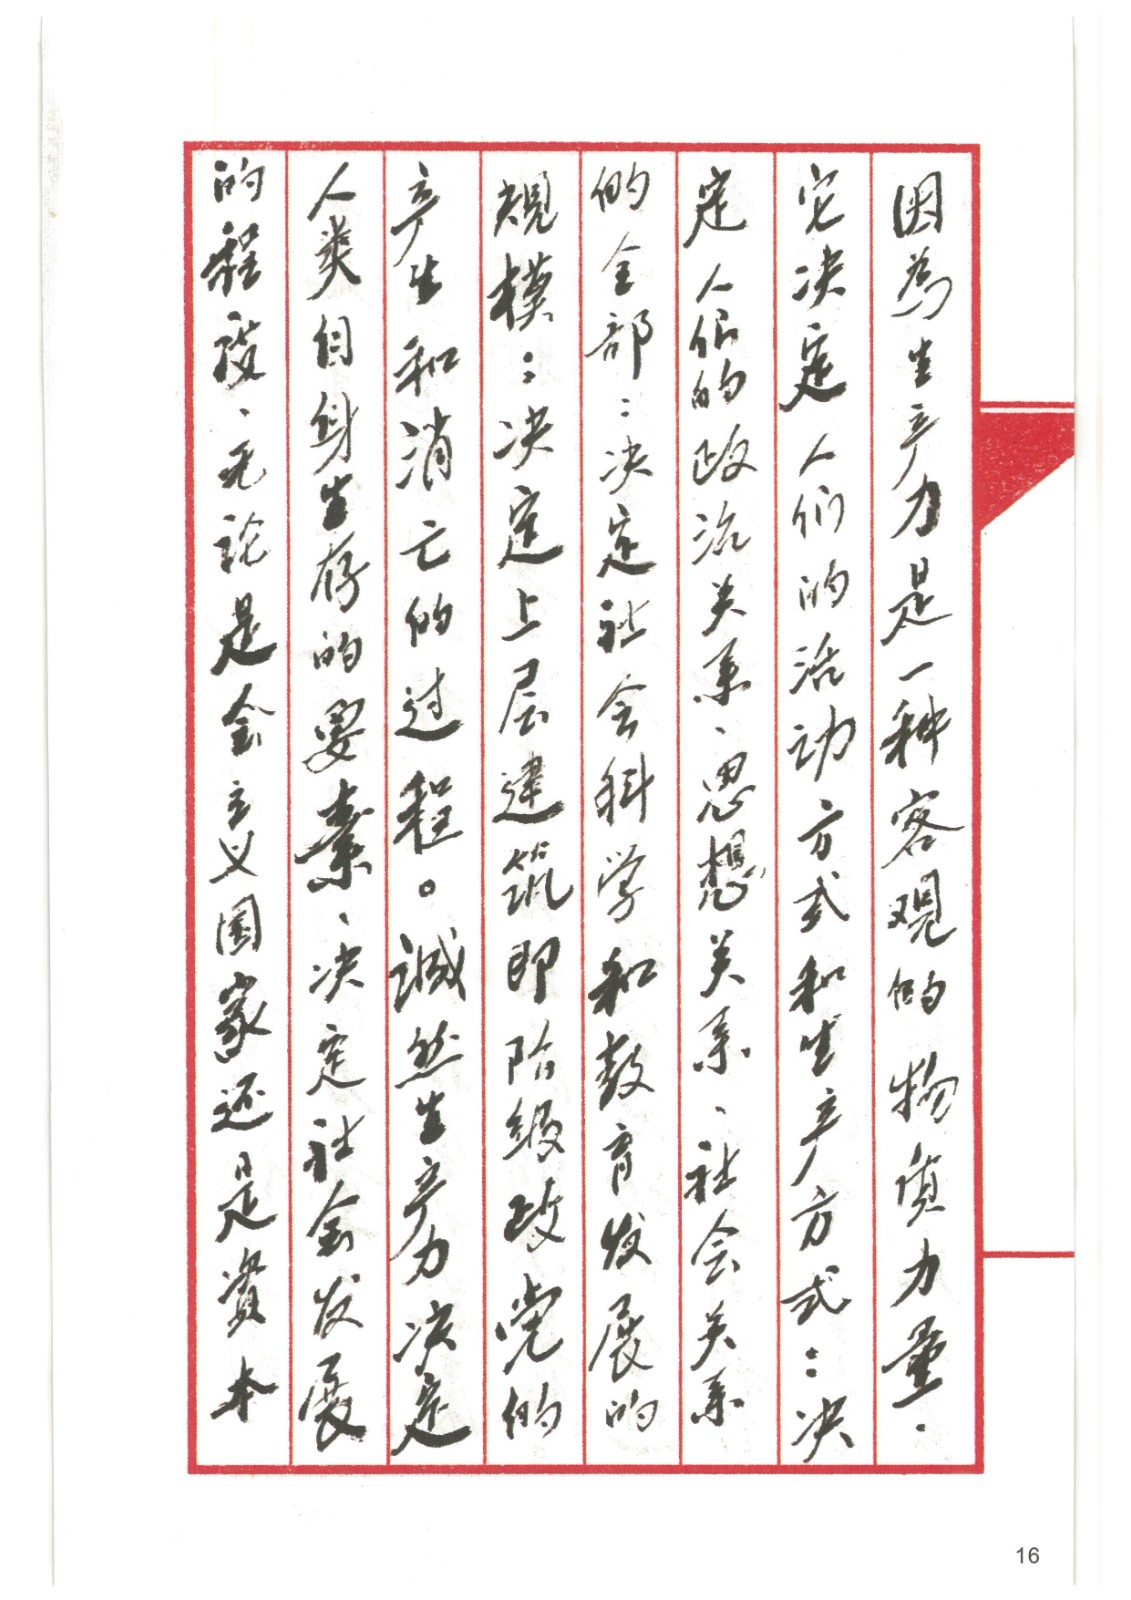 因為生产力是一种客观的物质力量.
它决定人们的活动方式和生产方式：决
定人们的政治关系、思想关系、社会关系
的全部：决定社会科学和教育发展的
規模：决定上层建筑即阶级政党的
产生和消亡的过程。誠然生产力决定
人类自身生存的要素、决定社会发展
的程度、无论是会主义国家还是資本
16